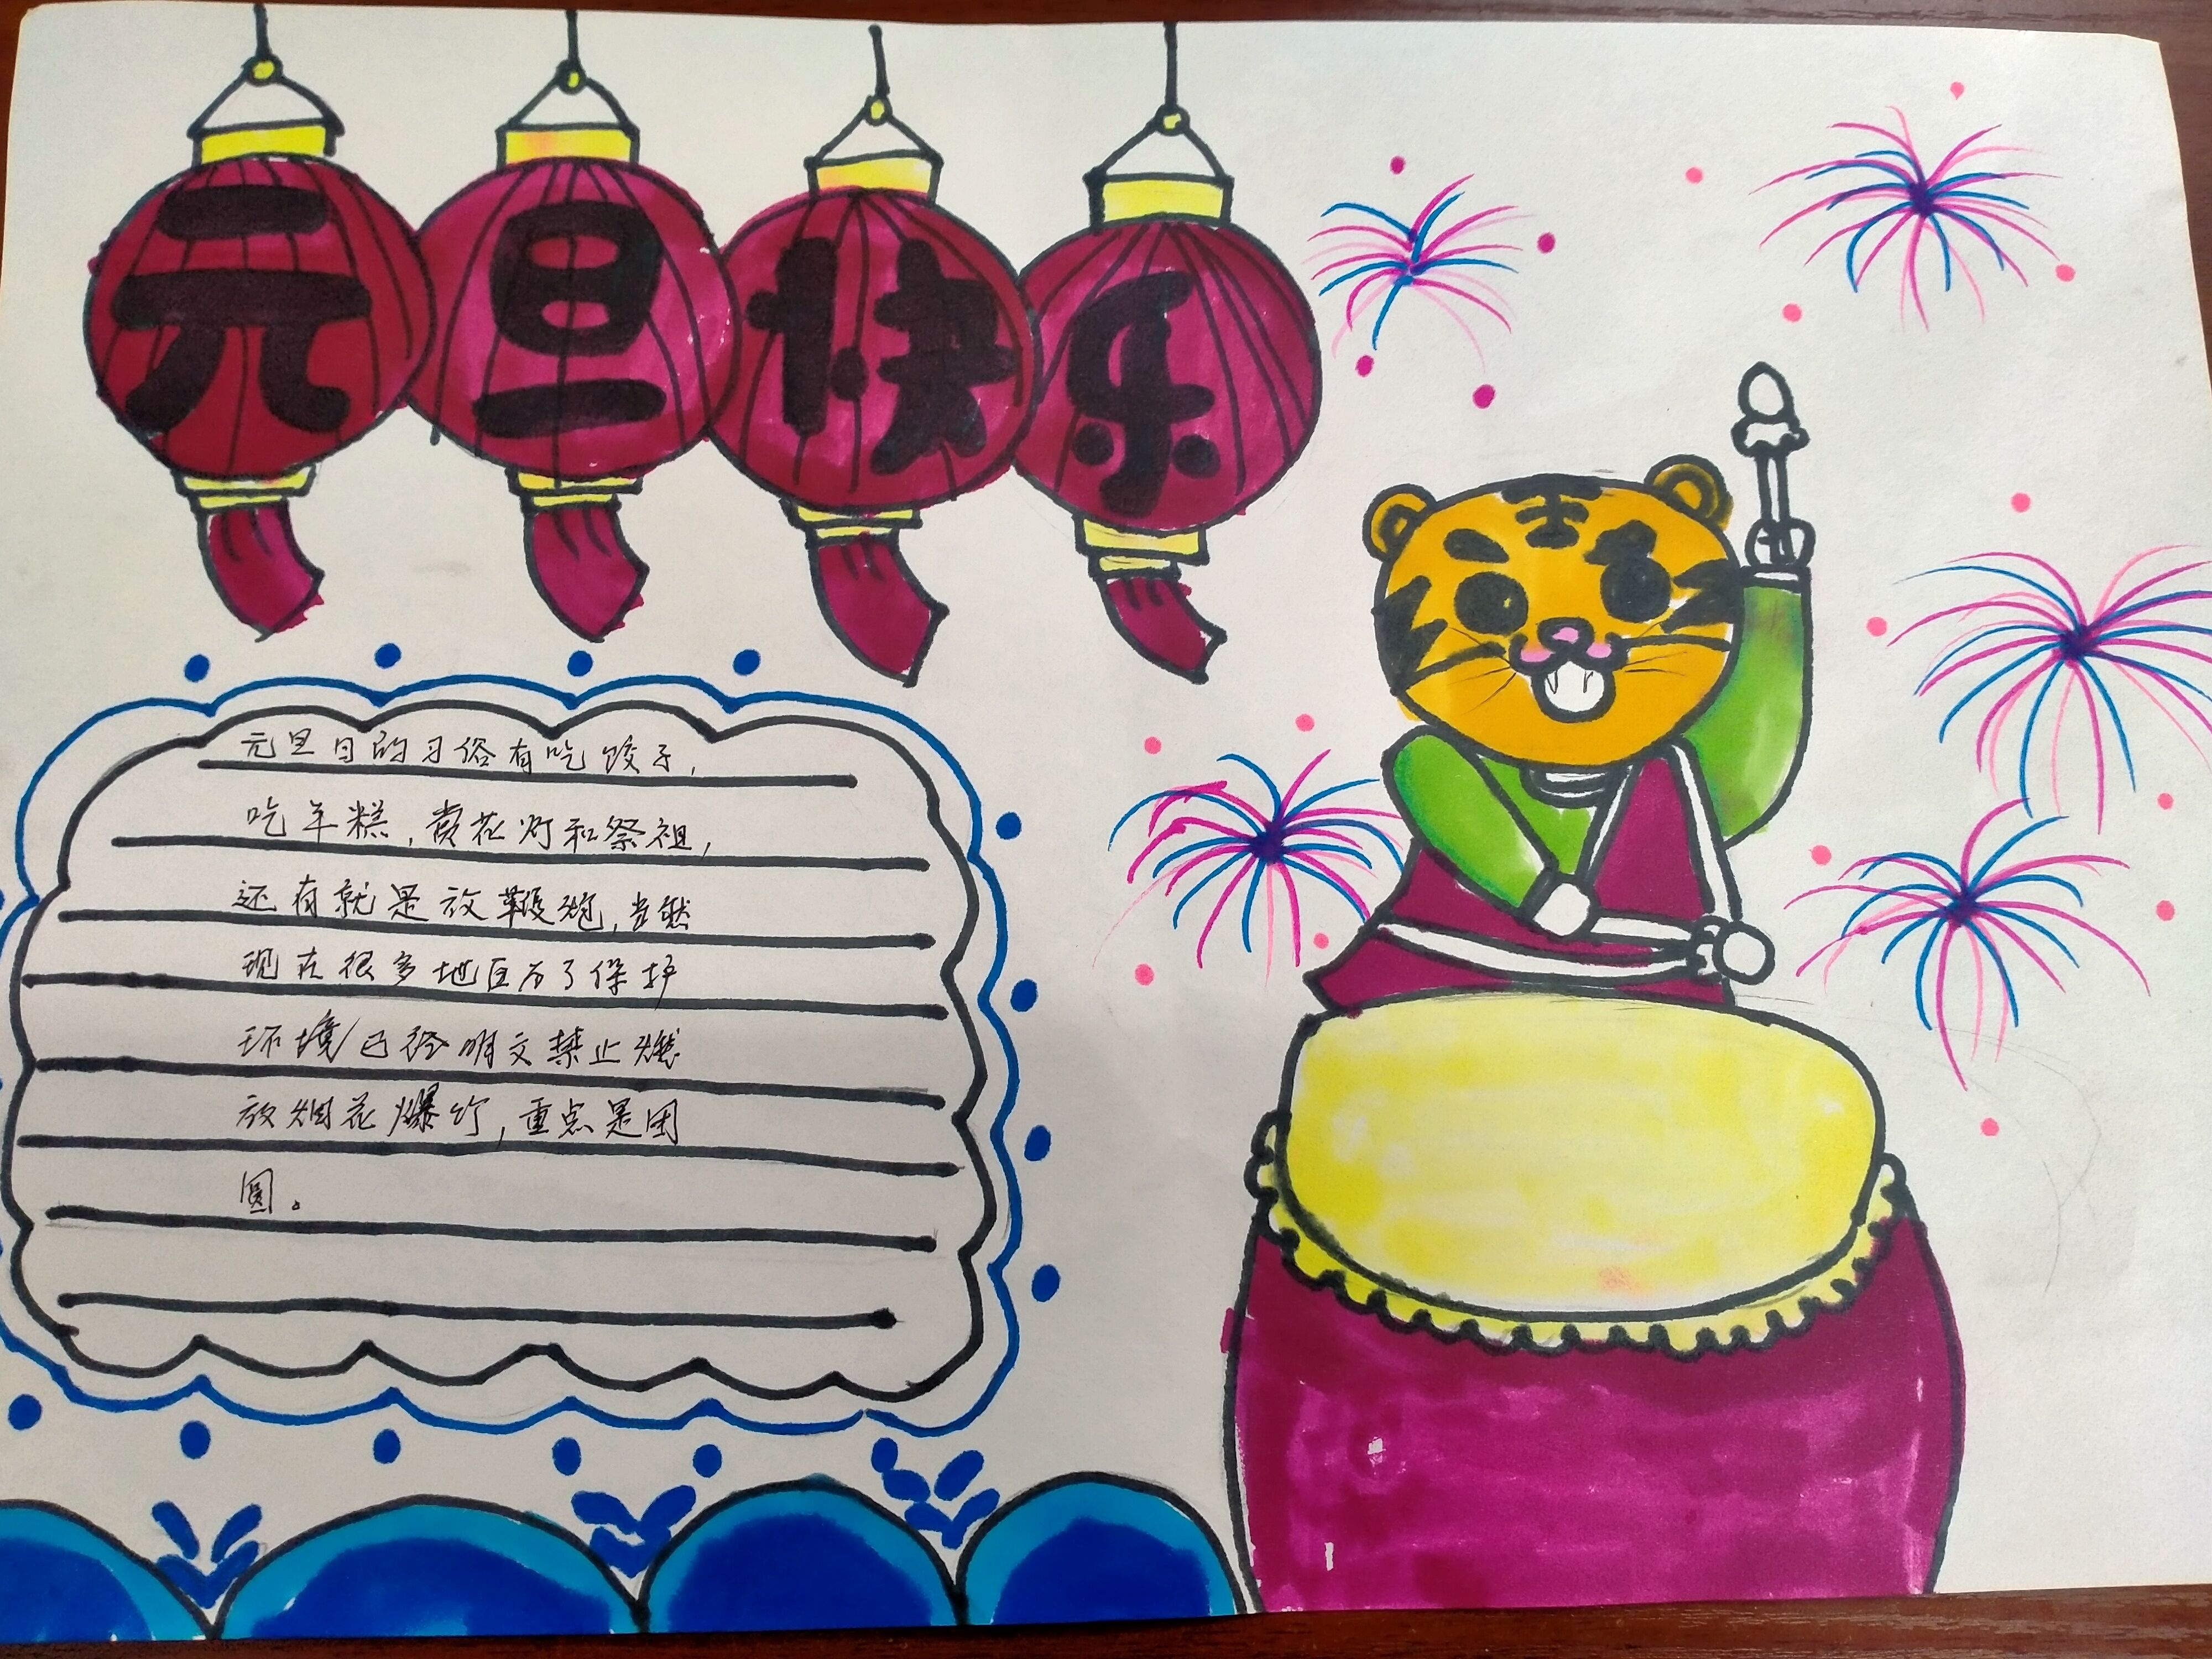 元旦快乐
元旦日的习俗有吃饺子,
吃年糕,赏花灯和祭祖,
还有就是放鞭炮,当然
现在很多地区为了保护
环境已经明文禁止燃
放烟花爆竹,重点是团
圆。